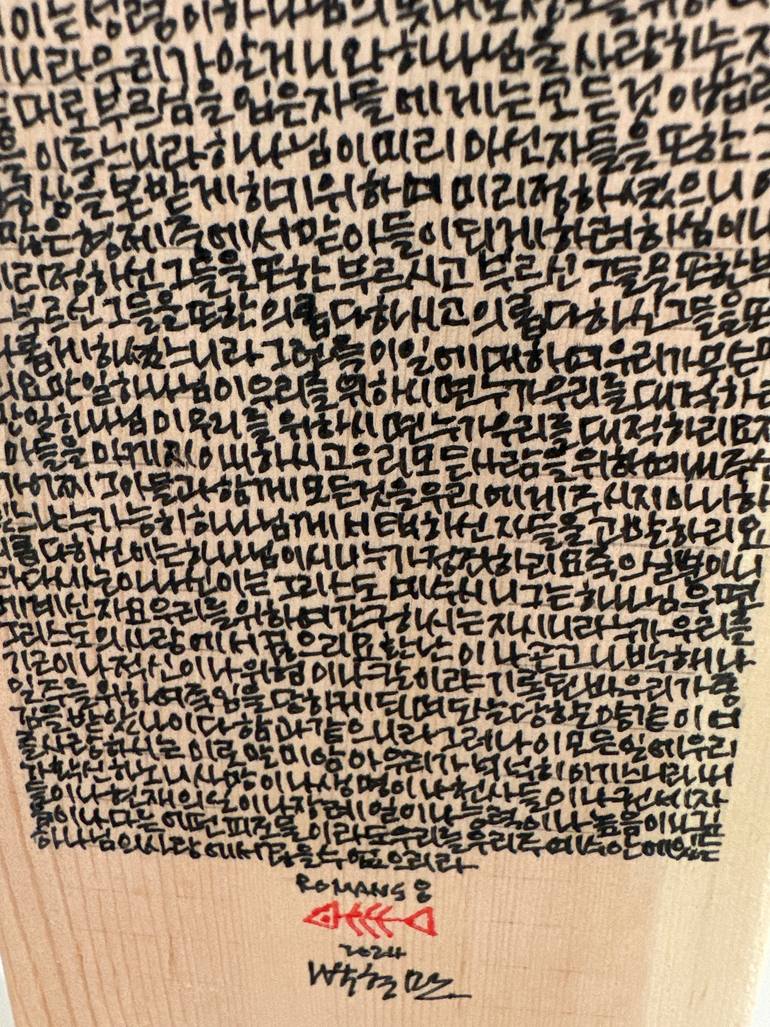 이는 성령이 하나님의 뜻대로 성도를 위하
니라 우리가 알거니와 하나님을 사랑하는 자
대로 부르심을 입은 자들에게는 모든 것이 합력
을 이루느니라 하나님이 미리 아신 자들을 또한 그
형상을 본받게 하기 위하여 미리 정하셨으니 이
많은 형제 중에서 맏아들이 되게 하려 하심이니
리 정하신 그들을 또한 부르시고 부르신 그들을 또한
부르신 그들을 또한 의롭다 하시고 의롭다 하신 그들을 또
롭게 하셨느니라 그런즉 이 일에 대하여 우리가 무슨
리요 만일 하나님이 우리를 위하시면 누가 우리를 대적하
만일 하나님이 우리를 위하시면 누가 우리를 대적하리요 자
아들을 아끼지 아니하시고 우리 모든 사람을 위하여 내주
가 어찌 그 아들과 함께 모든 것을 우리에게 주시지 아니하
누가 능히 하나님께서 택하신 자들을 고발하리요
롭다 하신 이는 하나님이시니 누가 정죄하리요 죽으실 뿐 아니
라 다시 살아나신 이는 그리스도 예수시니 그는 하나님 우편
에 계신 자요 우리를 위하여 간구하시는 자시니라 누가 우리를
그리스도의 사랑에서 끊으리요 환난이나 곤고나 박해나
기근이나 적신이나 위험이나 칼이랴 기록된 바 우리가 종
일 주를 위하여 죽임을 당하게 되며 도살 당할 양 같이 여
김을 받았나이다 함과 같으니라 그러나 이 모든 일에 우리
를 사랑하시는 이로 말미암아 우리가 넉넉히 이기느니라 내
가 확신하노니 사망이나 생명이나 천사들이나 권세자
들이나 현재 일이나 장래 일이나 능력이나 높음이나 깊
음이나 다른 어떤 피조물이라도 우리를 우리 주 예수 안에 있는
하나님의 사랑에서 끊을 수 없으리라
ROMANS 8
2024